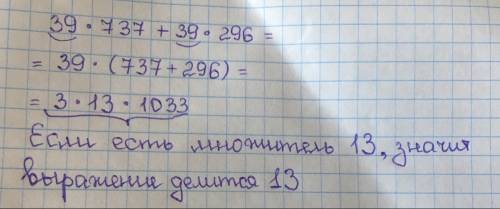 39 · 737 + 39 · 296 =
= 39 · (737 + 296) =
= 3 · 13 · 1033
Если есть множитель 13, значит
выражение делится 13